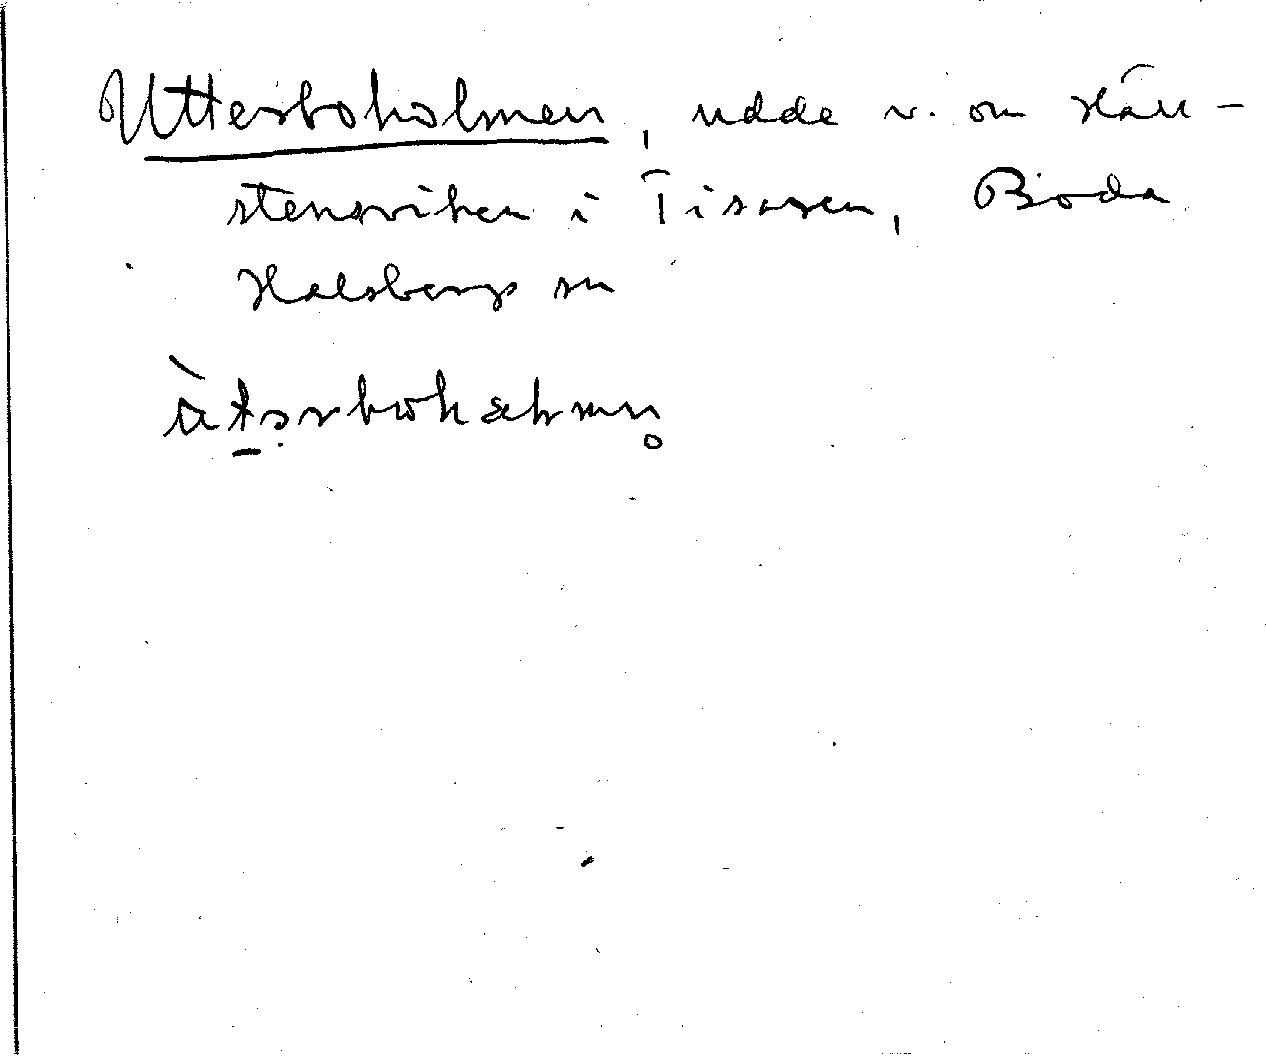 Utterboholmen, udde v. om Häll-
stensviken i Tisaren, Boda
Halsbergs sn